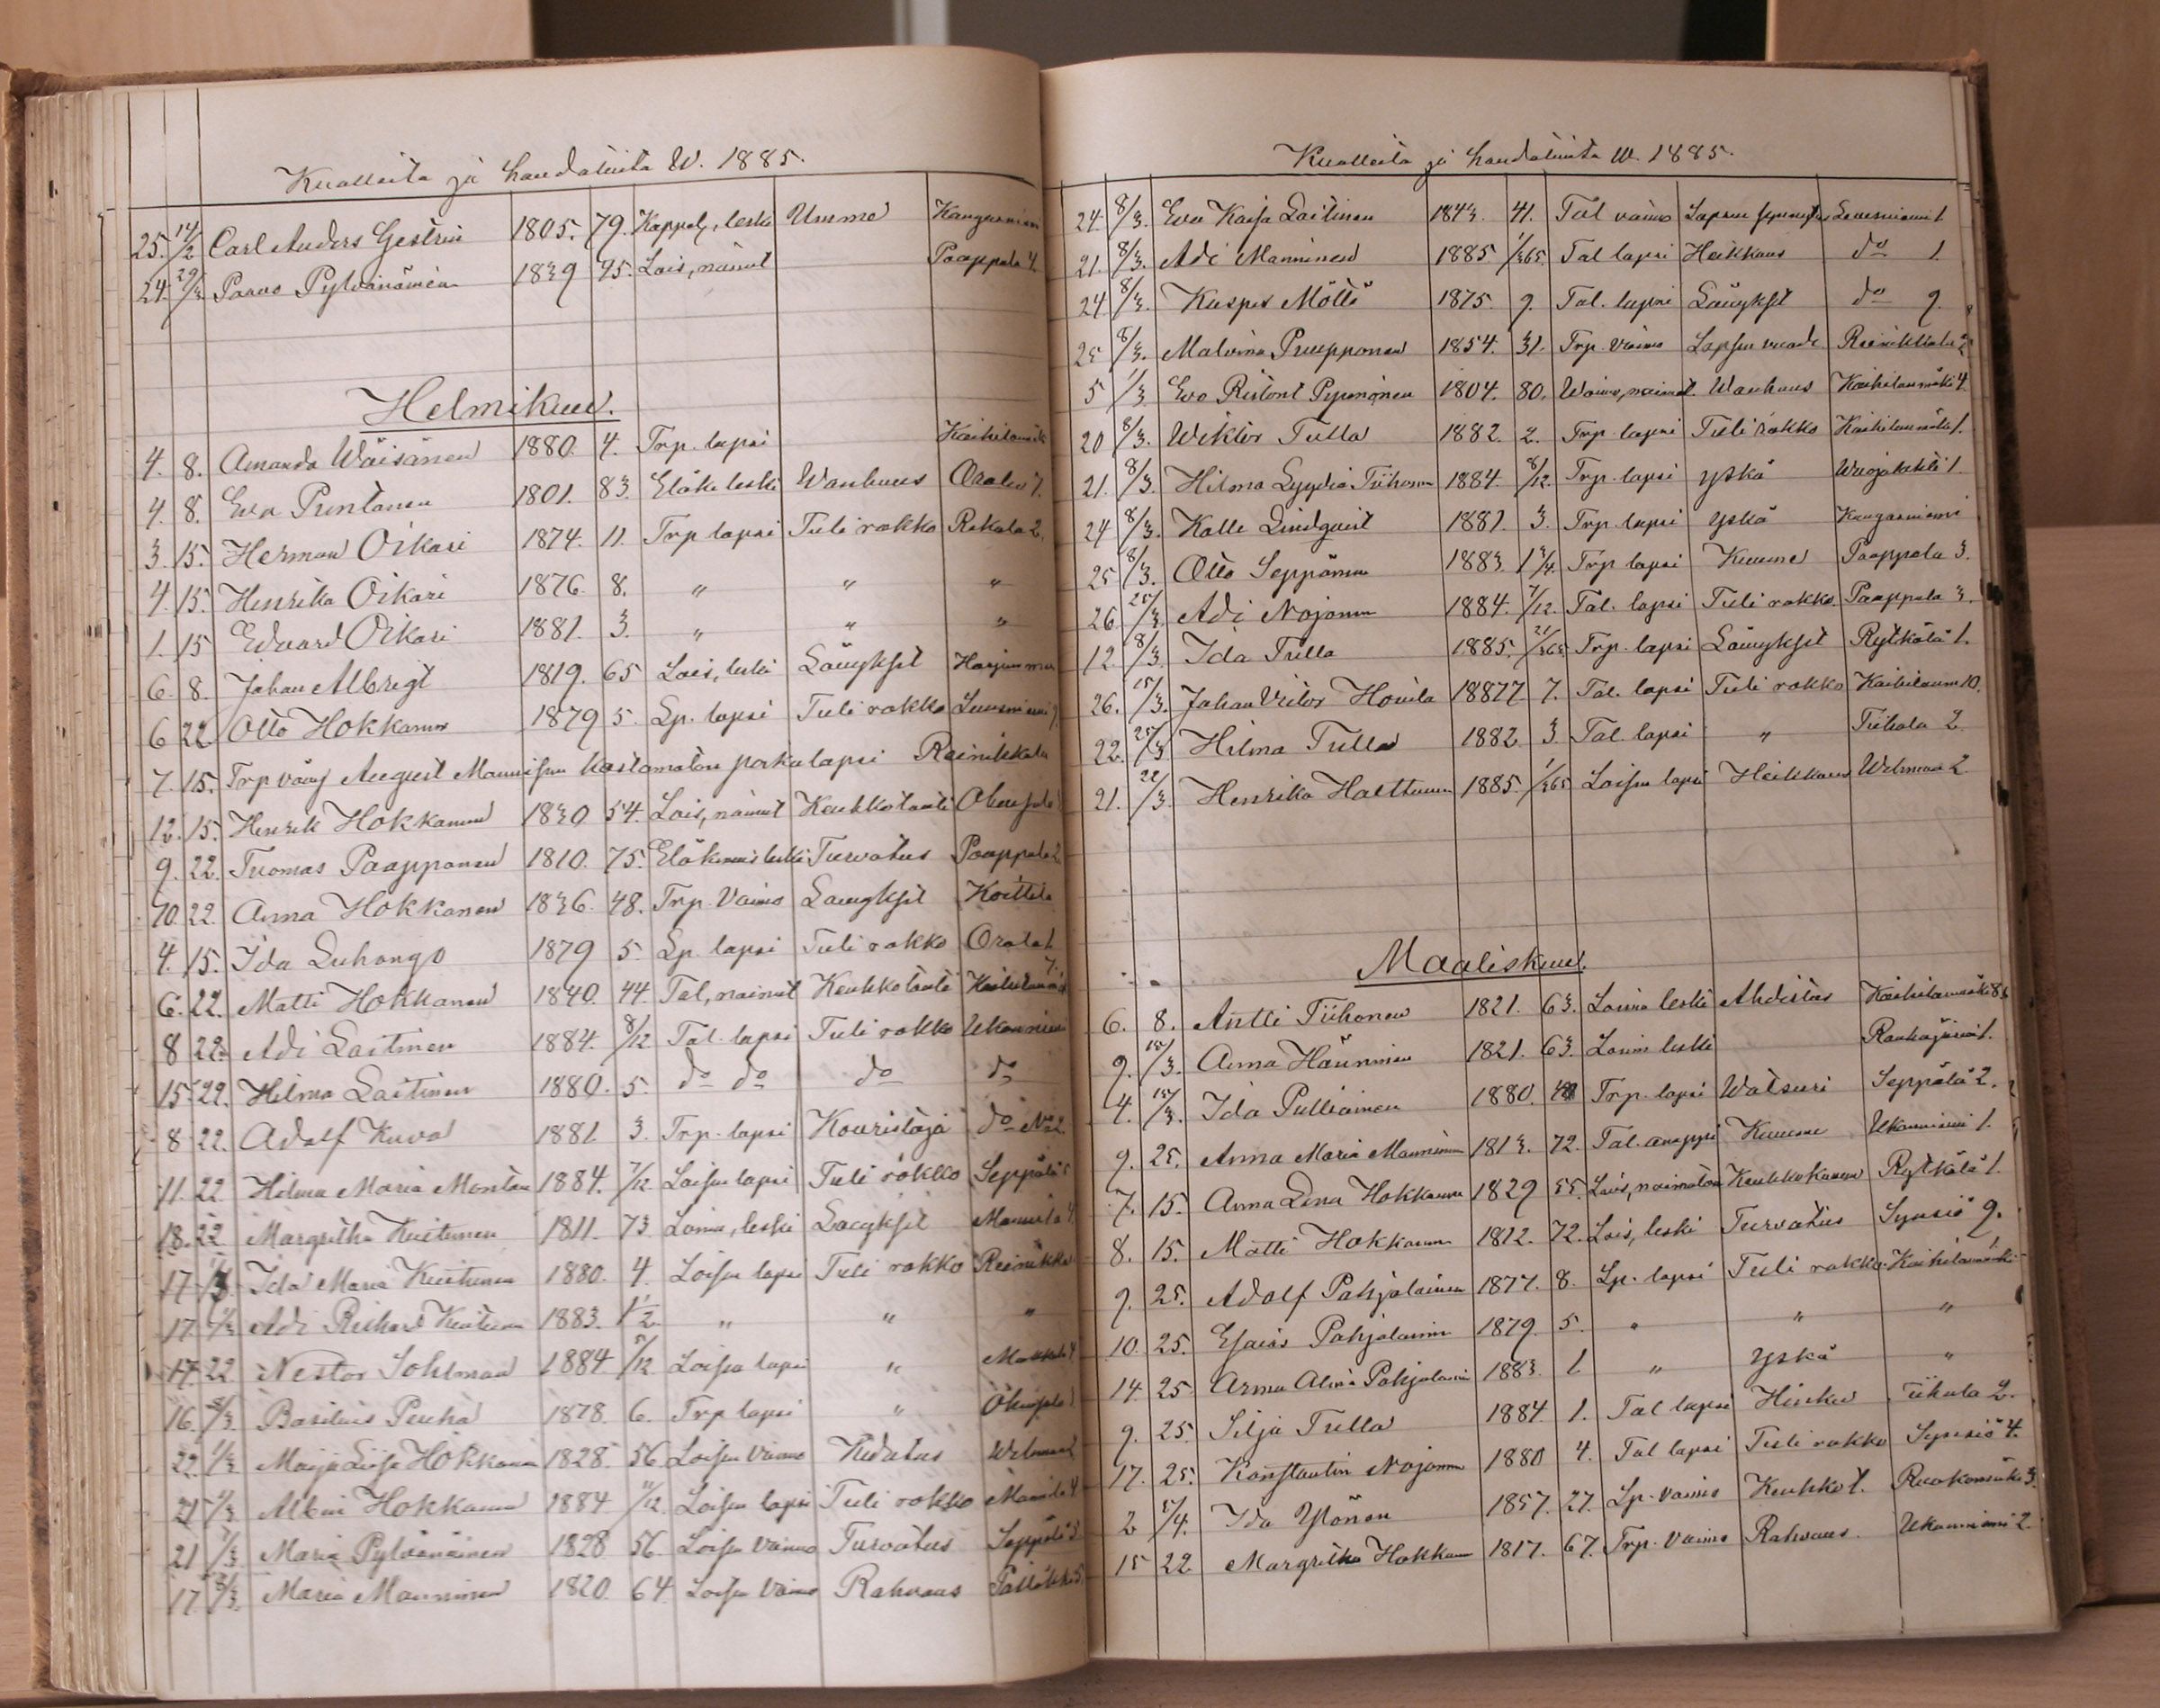 Kuolleita ja haudatuita W. 1885.
25. 14/2 Carl Anders Gestrin 1805. 79. Kappal, leski Umme Kangasniemi
24. Paavo Pylvänäinen 1839 45. Lois, nainut Paappala 4.
Helmikuu.
4. 8. Amanda Wäisänen 1880. 4. Trp. lapsi
4. 8. Eva Puntanen 1801. 83. Eläke leski Wanhuus Orala 1.
3. 15. Herman Oikari 1874. 11. Trp lapsi Tuli rokko Rekola 2.
4. 15. Henrikka Oikari 1876. 8. " " "
1. 15 Edvard Oikari 1881. 3. " " "
6. 8. Johan Albrigt 1819. 65 Lois, leski Läwyksit
6 22 Otto Hokkanen 1879 5. Lp. lapsi Tuli rokko
7. 15. Trp väwy August Mannisen kastamaton poikalapsi Reinikkala
12. 15. Henrik Hokkanen 1830 54. Lois, nainut Keuhkotauti
9. 22. Tuomas Paapponen 1810. 75. leski Turvotus Paappala 2.
10. 22. Anna Hokkanen 1836. 48. Trp. Vaimo Läwyksit Koittila
4. 15. Ida Luhango 1879 5. Lp. lapsi Tuli rokko Orala 1.
6. 22. Matti Hokkanen 1840. 44. Tal, nainut Keuhkotauti 7.
8 22. Adi Laitinen 1884. 8/12 Tal. lapsi Tuli rokko Ukonniemi
15. 22. Hilma Laitinen 1880. 5. do do do do
8. 22. Adolf Kuva 1881 3. Trp. lapsi Kouristaja do No 2.
11. 22 Hilma Maria Montin 1884. 7/12 Loisen lapsi Tuli rokko Seppälä
18. 22 Margretha Kuitunen 1811. 73 Loinen, leski Läwyksit Mannila 4.
17 Ida Maria Kuitunen 1880. 4. Loisen lapsi Tuli rokko
17. 1/3 Adi Rikhard Kuitunen 1883. 1 1/2 " " "
17. 22 Nestor Sohlman 1884 5/12 Loisen lapsi "
16. 8/3 Basilius Peuha 1878. 6. Trp lapsi "
22. 1/3 Maija Liisa Hokkanen 1828. 56. Loisen Vaimo
21 1/3 Hokkanen 1884 11/12 Loisen lapsi Tuli rokko Mannila 4
21 1/3 Maria Pylvänäinen 1828 56. Loisen vaimo Turvotus Seppälä
17 8/3. Maria Manninen 1820. 64 Loisen Vaimo Rahvaus
Kuolleita ja haudatuita W. 1885.
24. 8/3. Eva Kaisa Laitinen 1843. 41. Tal vaimo Lapsen
21. 8/3. Adi Manninen 1885 1/365. Tal lapsi Heikkous do 1.
24 8/3. Kaspes Möttö 1875. 9. Tal. lapsi Läwyksit do 9.
25 8/3. Malvina Puupponen 1854. 31. Trp. Vaimo Lapsen vuode Reinikkala 2
5 1/3. Eva Ristont Pynnönen 1804. 80. Waimo, nainut. Wanhuus 4.
20 8/3. Wiktor Tulla 1882. 2. Trp lapsi Tuli rokko 1.
21. 8/3. Hilma Lyydia Tiihonen 1884. 8/12. Trp. lapsi yskä 1.
24 8/3. Kalle Lindquist 1881. 3. Trp lapsi yskä Kangasniemi
25 8/3. Otto Seppänen 1883. 1 3/4. Trp lapsi Kuume Paappala 3.
26. 25/3 Adi Nojonen 1884. 7/12. Tal. lapsi Tuli rokko. Paappala 3.
12. 8/3. Ida Tulla 1885. 21/365 Trp. lapsi Läwyksit Rytkölä 1.
26. 15/3. Johan Victor Hovila 18877 7. Tal. lapsi Tuli rokko 10.
22. 25/3 Hilma Tulla 1882 3. Tal. lapsi " Tiihola 2.
21. 22/3. Henrika Halttunen 1885. 1/365 Loisen lapsi Heikkous 2.
Maaliskuu.
6. 8. Antti Tiihonen 1821. 63. Loinen leski Ahdistus
9. 15/3. Anna Hänninen 1821. 63. Loinen leski 1.
4. 15/3. Ida Pulliainen 1880. Trp. lapsi Watsuri Seppälä 2.
9. 25. Anna Maria Manninen 1813. 72. Tal. anoppi Kuume Ukonniemi 1.
7. 15. Anna Lena Hokkanen 1829 55. Lois, naimaton Rytkölä 1.
8. 15. Matti Hokkanen 1812. 72. Lois, leski Turvotus Synsiö 9.
9. 25. Adolf Pohjolainen 1877. 8. Lp. lapsi Tuli rokko
10. 25. Esaias Pohjolainen 1879. 5. " " "
14. 25 Anna Alina Pohjolainen 1883. 1 " yskä "
9. 25. Silja Tulla 1884. 1. Tal lapsi Hinku Tiihola 2.
17. 25. Konstantin Nojonen 1880 4. Tal lapsi Tuli rokko Synsiö 4.
2 Ida Ylönen 1857. 27. Lp. Vaimo Keuhko t. 3.
15 22. Margretha Hokkanen 1817. 67. Trp. Vaimo Rahvaus. Ukonniemi 2.